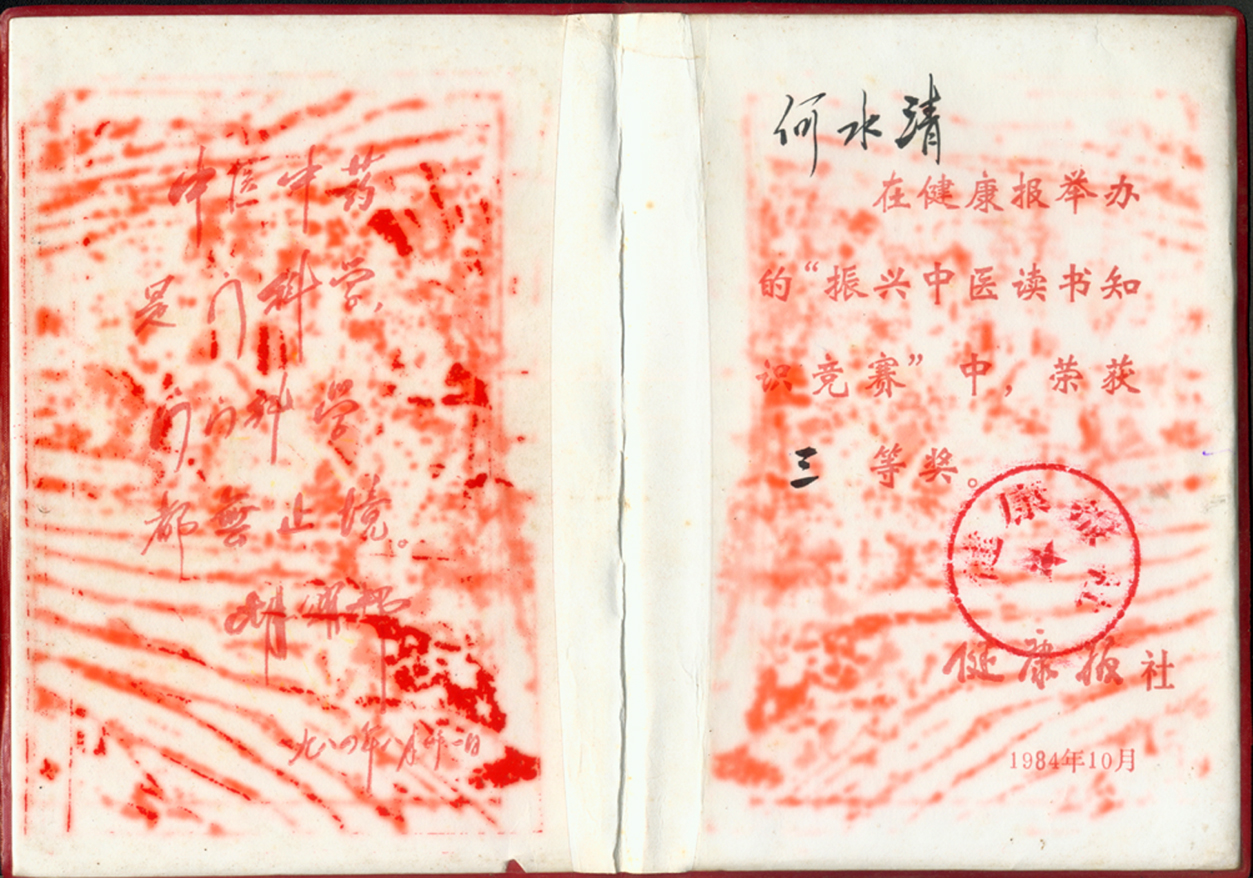 中医中药
是门科学，
门门科学
都無止境。
胡
九八四年八月
何水清
在健康报举办
的“振兴中医读书知
识竞赛”中，荣获
三等奖。
健康报社
健康报社
1984年10月